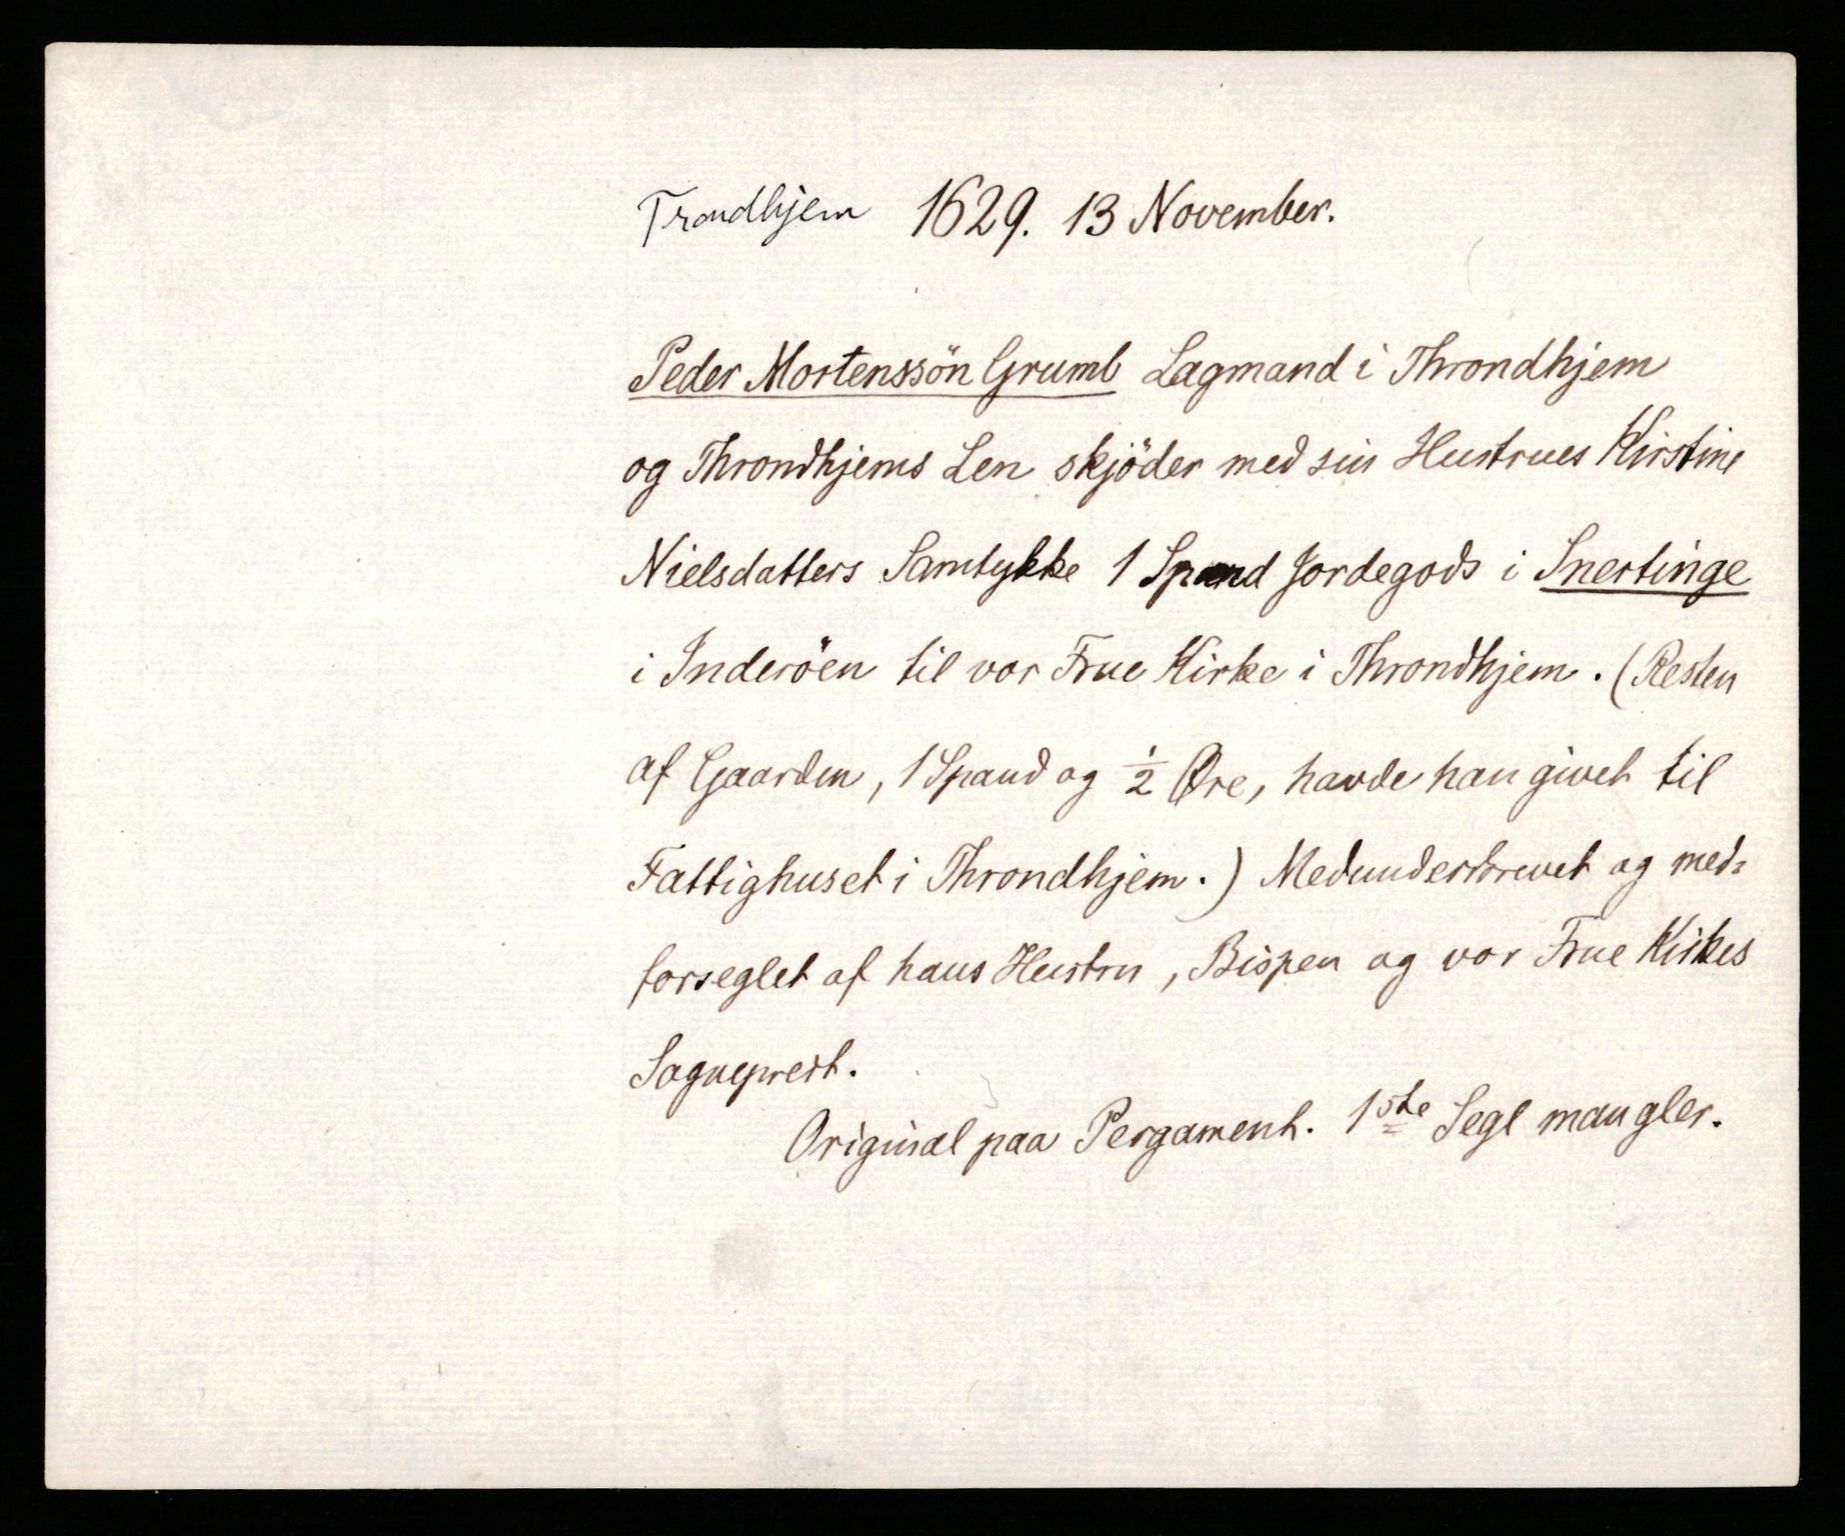 Trondhjem 1629. 13 November.
Peder Mortenssön Grumb Lagmand i Throndhjem
og Throndhjems Len skjöder med sin Hustrues Kirstine
Nielsdatters Samtykke 1 Spand Jordegods i Snertinge
i Inderöen til vor Frue Kirke i Throndhjem. (Resten
af Gaarden, 1 Spand og ½ Øre, havde han givet til
Fattighuset i Throndhjem.) Medunderskrevet og med=
forseglet af hans Hustru, Bispen og vor Frue Kirkes
Sognepræst.
Original paa Pergament. 1ste Segl mangler.